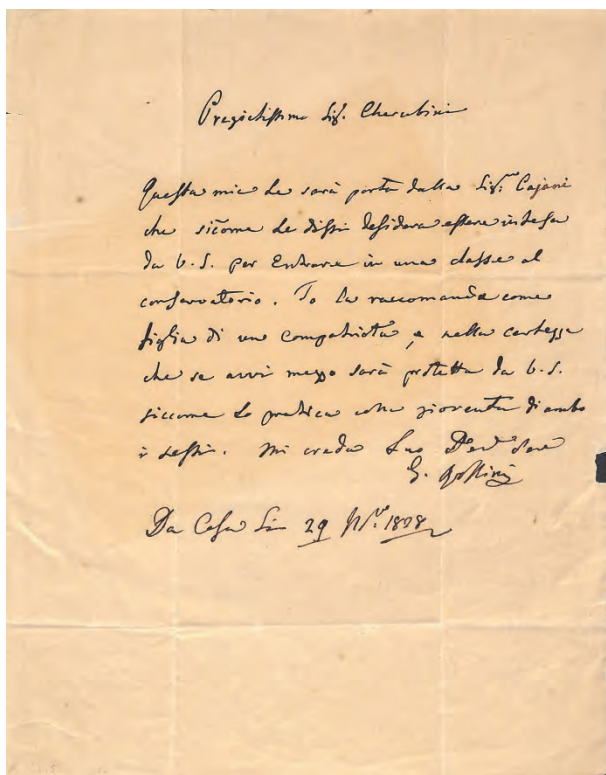 Pregiatissimo Sig. Cherubini
Questa mia Le sarà porta dalla Sig.ra Cajani
che siccome Le dissi desidera essere intesa
da V. S. per Entrare in una classe al
conservatorio. Io la raccomando come
figlia di un compatriota, e nella certezza
che se avvi mezzo sarà protetta da V. S.
siccome Lo pratica colla gioventu di ambo
i sessi. Mi creda Suo Dev.
G. Rossini
Da Casa Li 29 1828